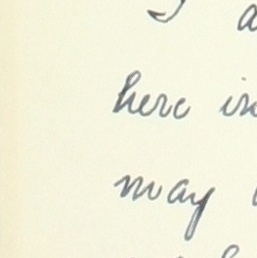 I a
here in
may